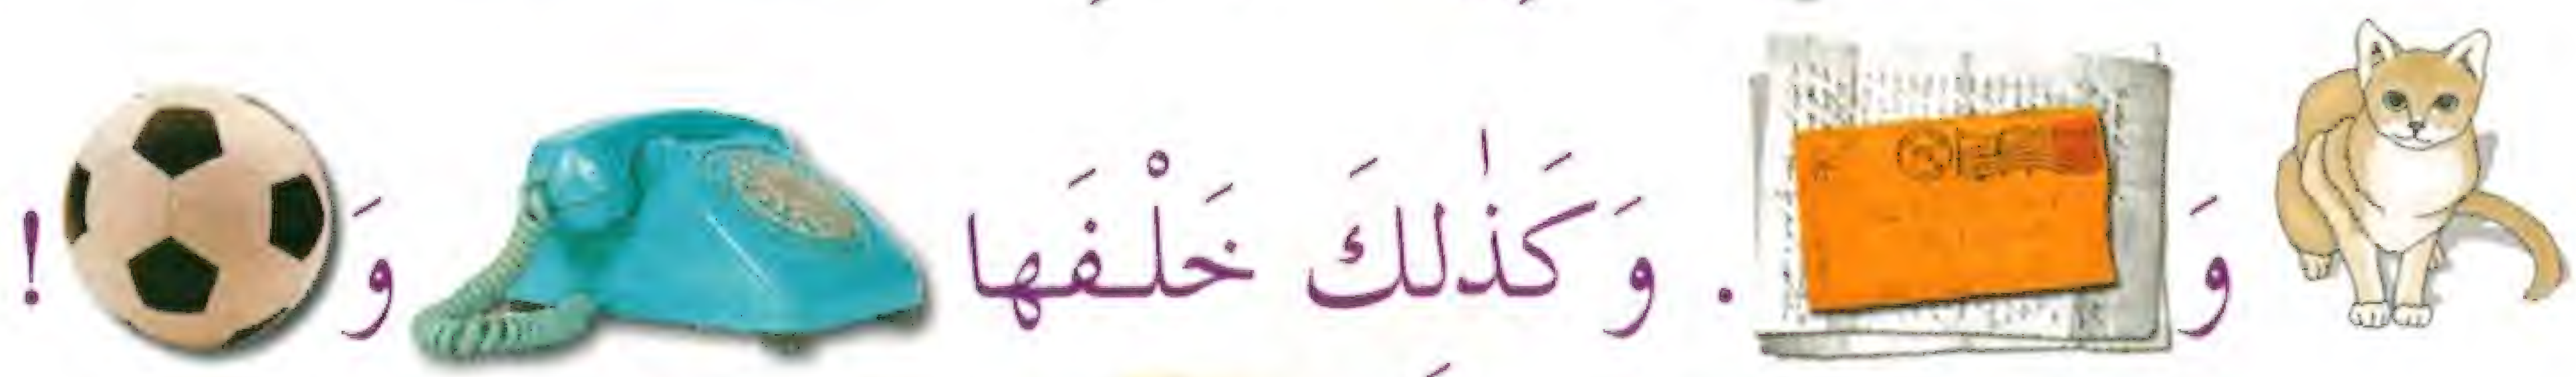 وَ . وَكَذٰلكَ خَلْفَها وَ !